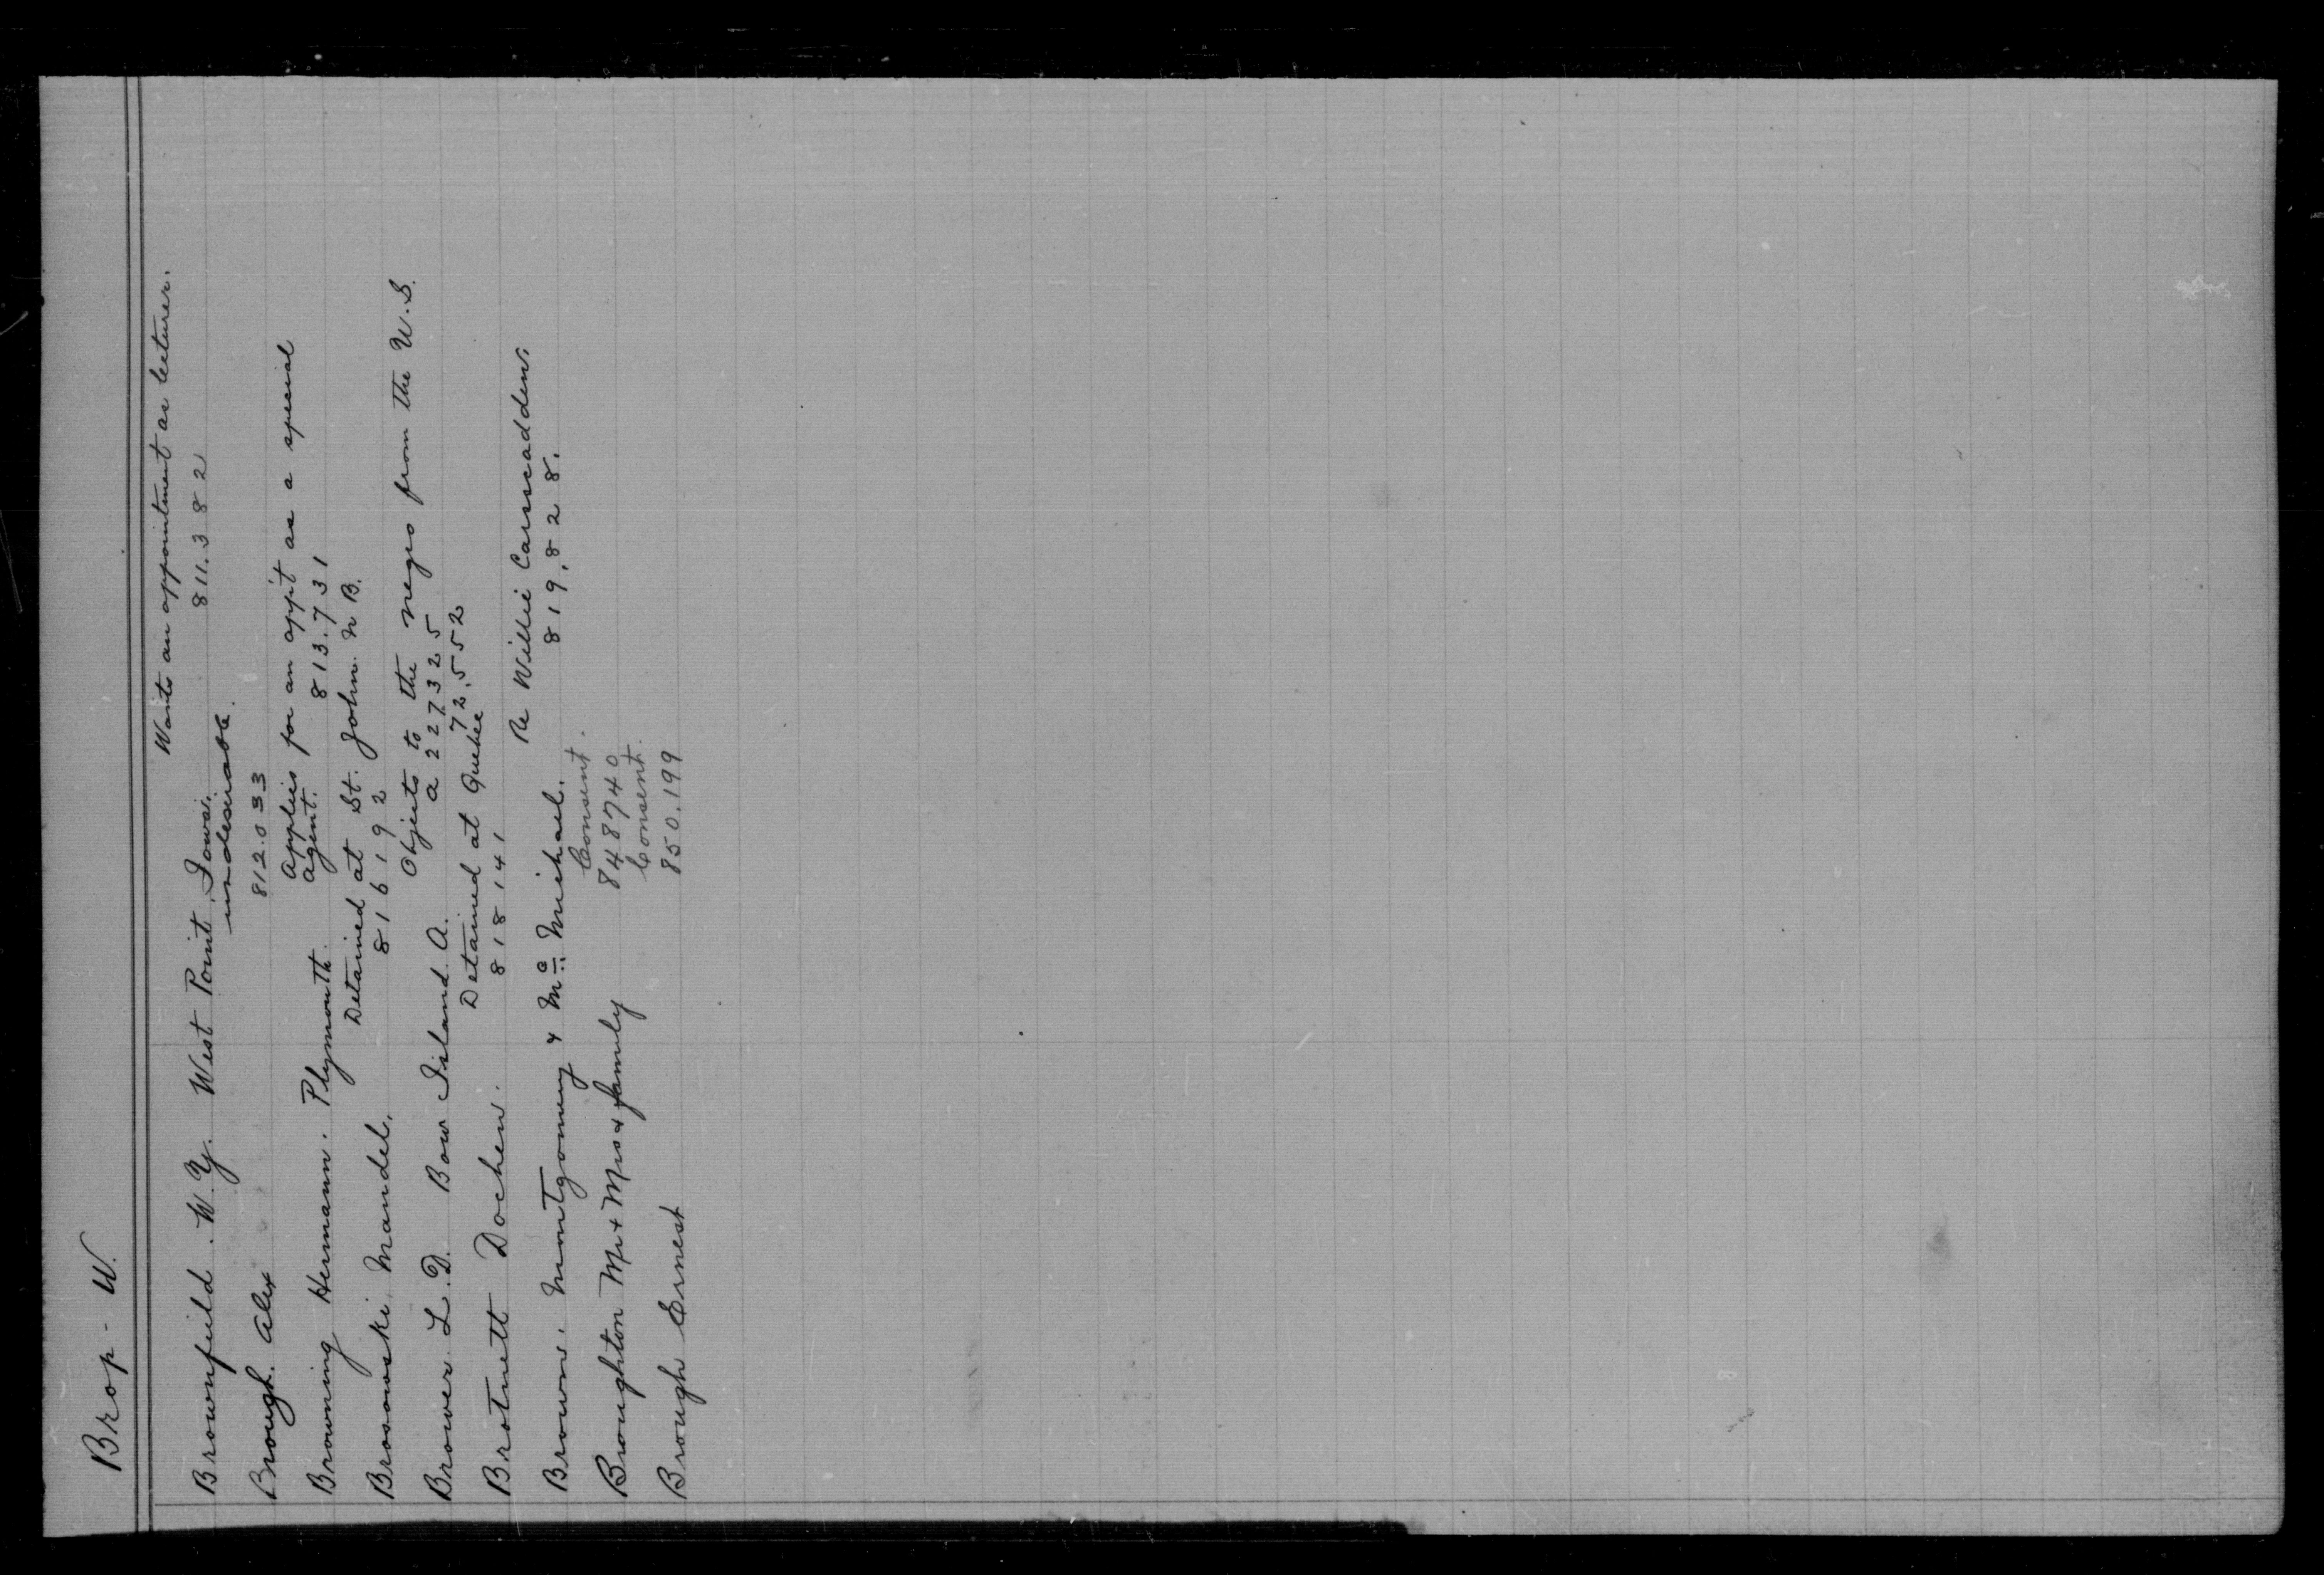 Brop - W.
Wants an appointment as lecturer.
Brownfield. W.Y. West Point, Iowa. 811.382
undesirable.
Brough. Alex 812.033
Applies for an app't as a special
Browning Hermann. Plymouth. agent. 813.731
Detained at St. John. N B.
Brosowski Mandel. 816192
Objects to the negro from the U.S.
Brower. L.D. Bow Island. A. a 227325
72.552
Detained at Quebec
Brotnett Dochen. 818141
Re Willie Carscadden.
Brown. Montgomery & Mc Michael. 819.828.
Consent.
Broughton Mr & Mrs & family 848740
Consent.
Brough Ernest 850.199